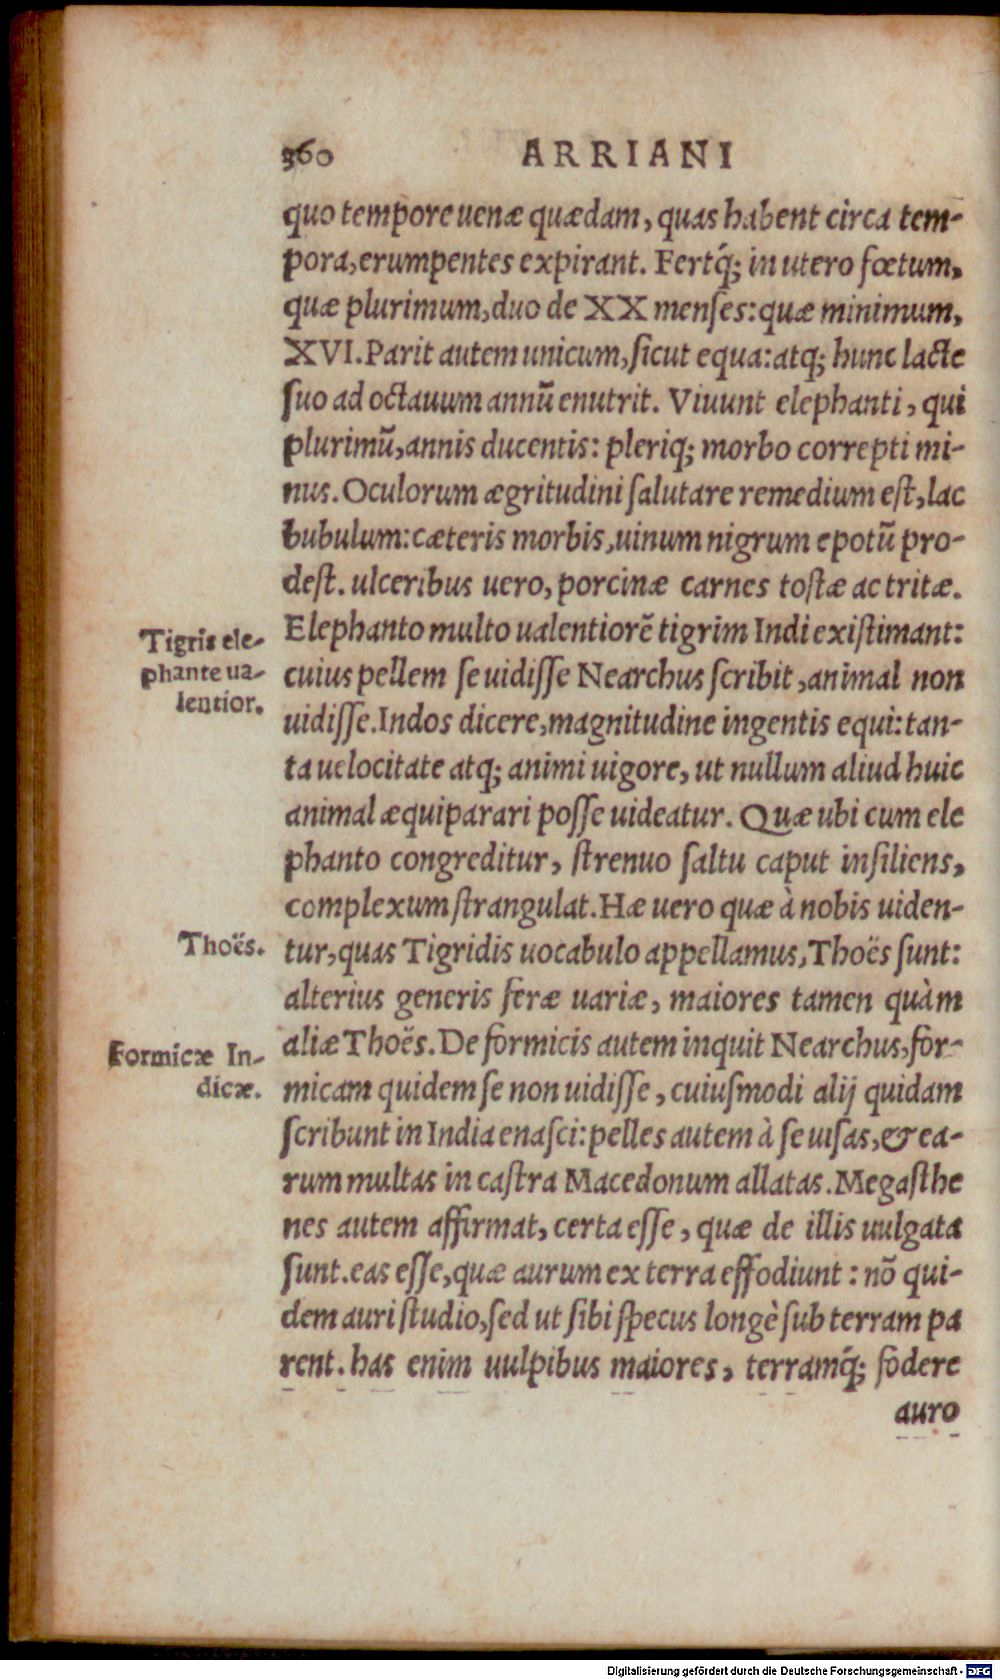 360 ARRIANI
quo tempore uenæ quædam, quas habent circa tem-
pora, erumpentes expirant. Fertq́; in utero fœtum,
quæ plurimum, duo de XX menses: quæ minimum,
XVI. Parit autem unicum, sicut equa: atq; hunc lacte
suo ad octauum annũ enutrit. Viuunt elephanti, qui
plurimũ, annis ducentis: pleriq; morbo correpti mi-
nus. Oculorum ægritudini salutare remedium est, lac
bubulum: cæteris morbis, uinum nigrum epotũ pro-
dest. ulceribus uero, porcinæ carnes tostæ ac tritæ.
Elephanto multo ualentiorẽ tigrim Indi existimant:
Tigris ele-
phante ua-
lentior.
cuius pellem se uidisse Nearchus scribit, animal non
uidisse. Indos dicere, magnitudine ingentis equi: tan-
ta uelocitate atq; animi uigore, ut nullum aliud huic
animal æquiparari posse uideatur. Quæ ubi cum ele
phanto congreditur, strenuo saltu caput insiliens,
complexum strangulat. Hæ uero quæ à nobis uiden-
Thoës.
tur, quas Tigridis uocabulo appellamus, Thoës sunt:
alterius generis feræ uariæ, maiores tamen quàm
aliæ Thoës. De formicis autem inquit Nearchus, for-
Formicæ In-
dicæ.
micam quidem se non uidisse, cuiusmodi alij quidam
scribunt in India enasci: pelles autem à se uisas, & ea-
rum multas in castra Macedonum allatas. Megasthe
nes autem affirmat, certa esse, quæ de illis uulgata
sunt. eas esse, quæ aurum ex terra effodiunt: nõ qui-
dem auri studio, sed ut sibi specus longè sub terram pa
rent. has enim uulpibus maiores, terramq́; fodere
auro
Digitalisierung gefördert durch die Deutsche Forschungsgemeinschaft - DFG